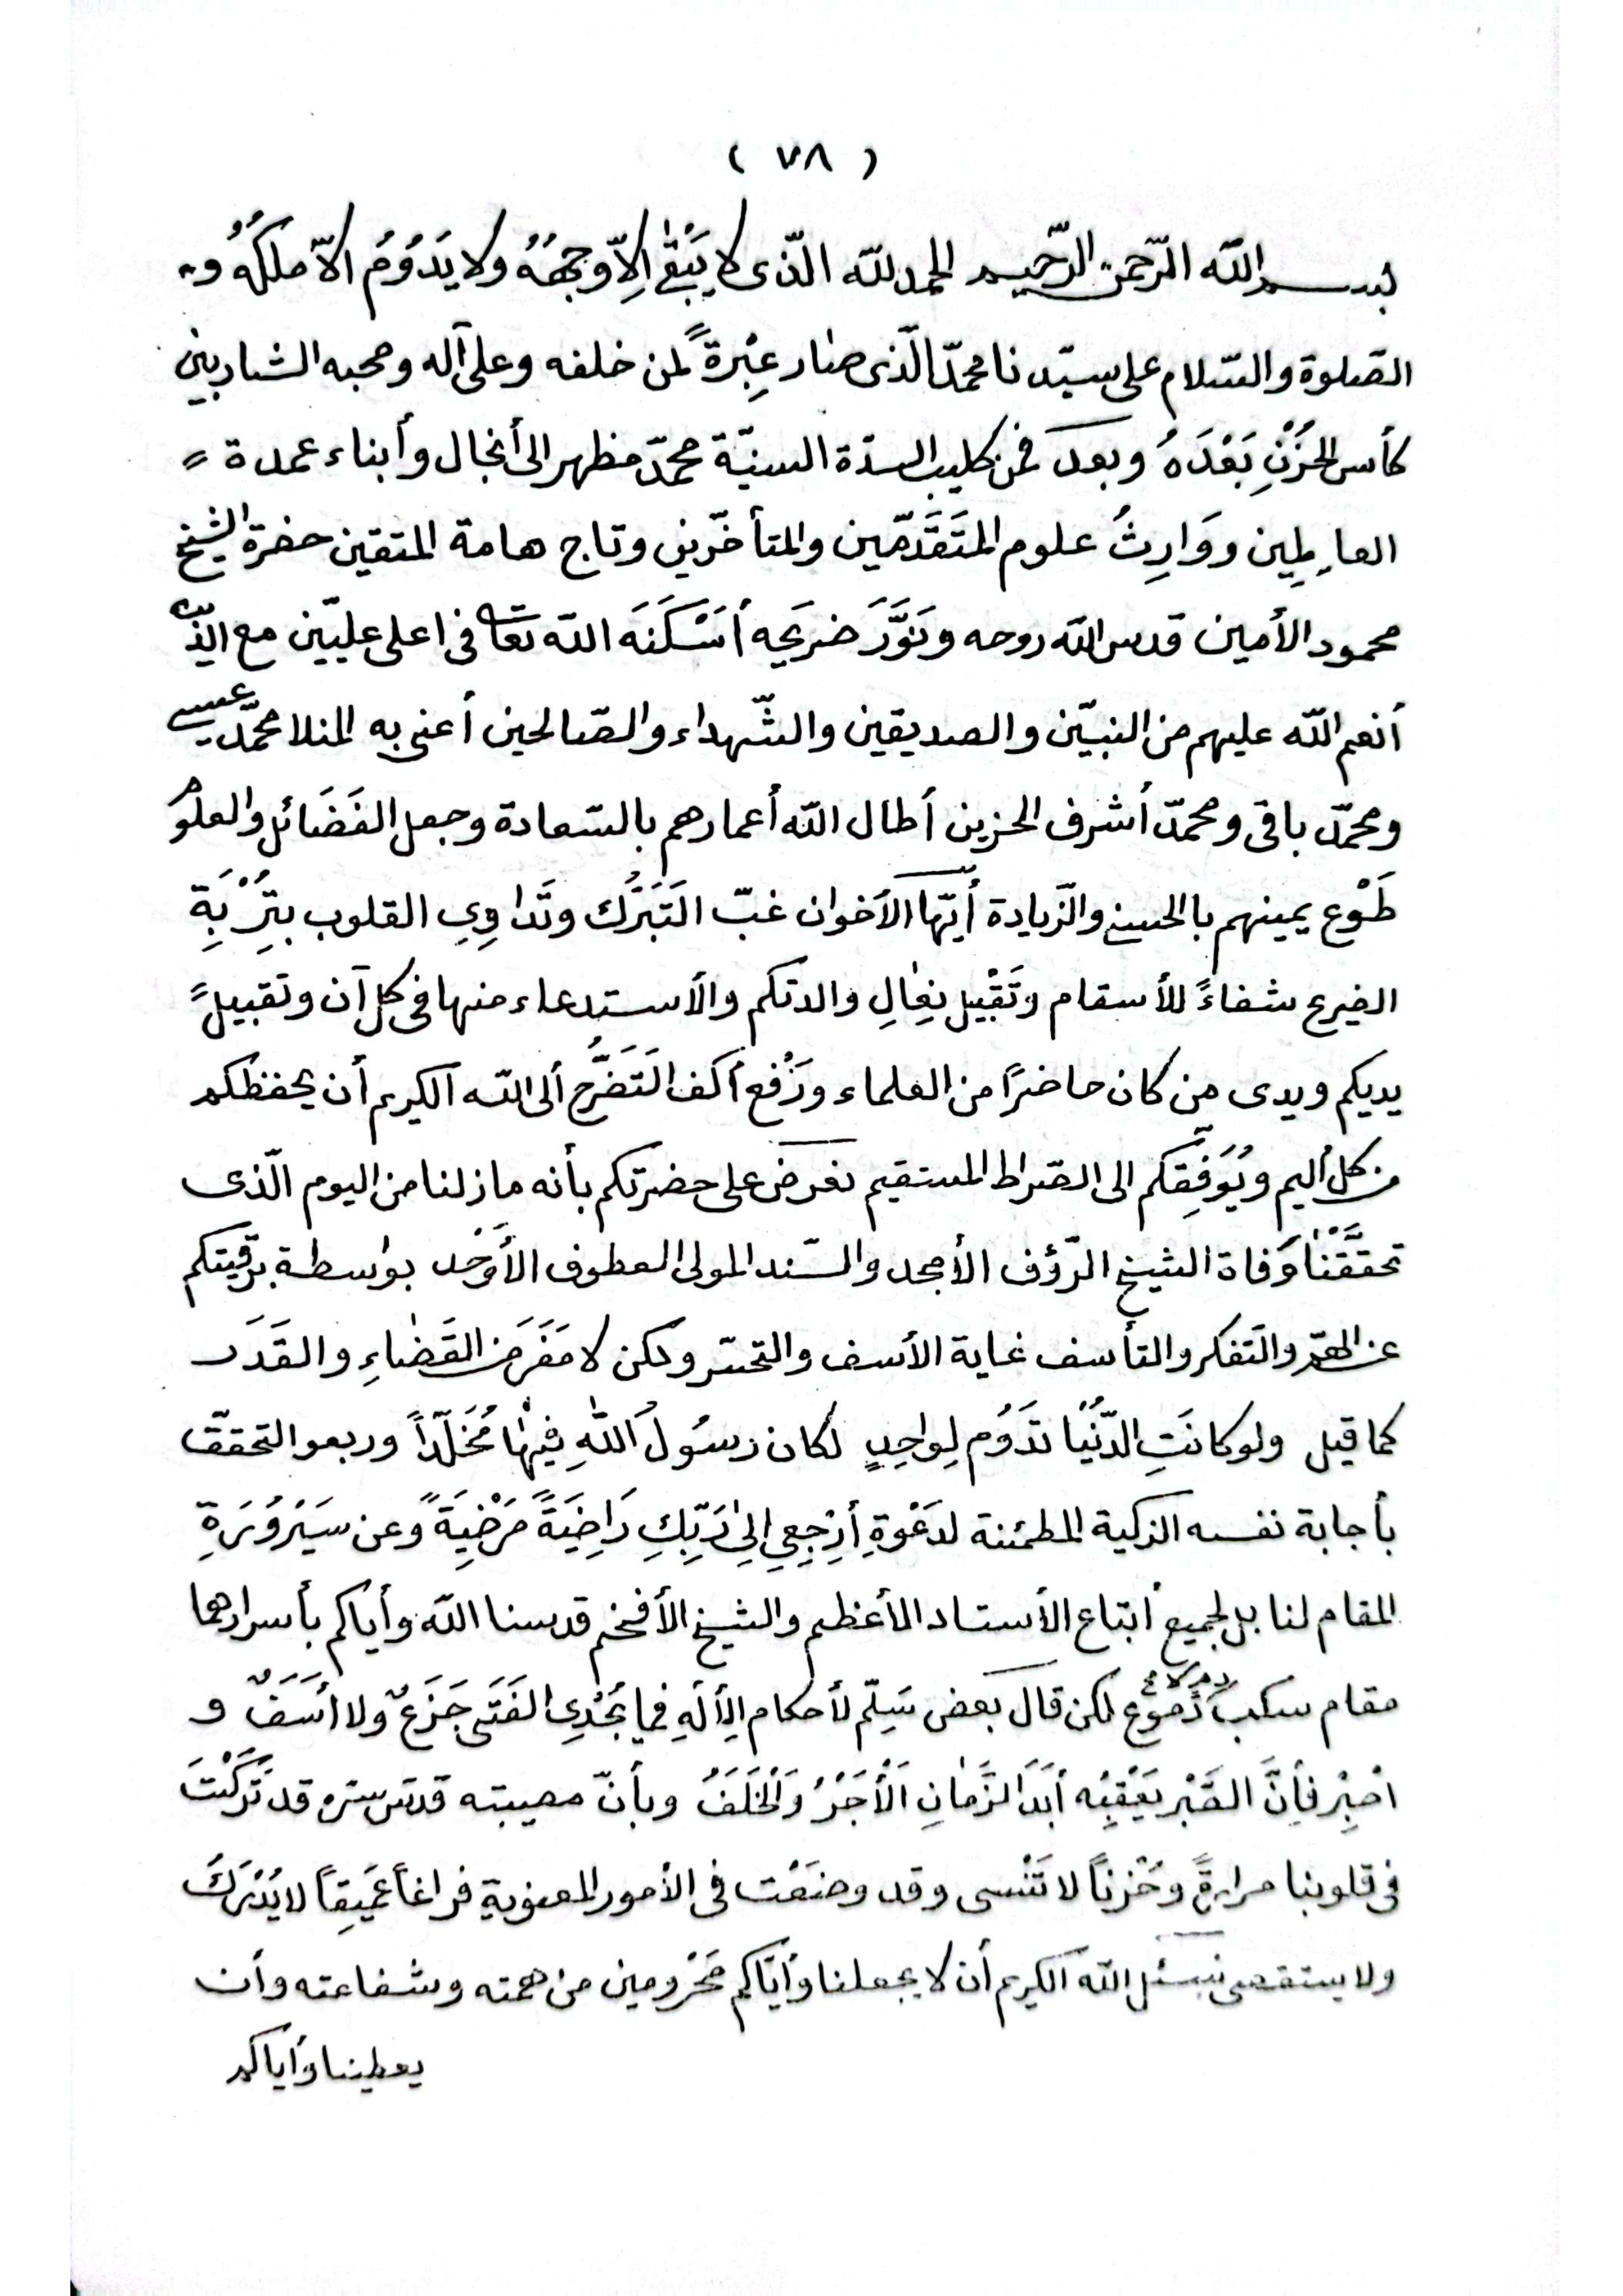 ( ٧٨ )
بسم الله الرّحمن الرّحيم الحمد لله الّذى لا يَبْقٰى اِلاّ وجهُهُ ولا يَدُوُمُ الاّ ملكُهُ و
الصّلوة والسّلام على سيّدنا محمّد الّذى صار عِبْرةً لمن خلفه وعلى آله وصحبه الشاربين
كأس الحُزْنِ بَعْدَهُ وبعد فمن كليب السدّة السنيّة محمّد مظهر الى أنجال وأبناء عمدة
العامِلِين ووَارِثُ علوم المتَقَدّمّين والمتأخّرين وتاج هامة المتقين حضرة الشيخ
محمود الأمين قدس الله روحه ونَوَّرَ ضريحه أسْكَنَه الله تعا فى اعلى عليّين مع الّذين
أنعم الله عليهم من النبيّين والصديقين والشّهداء والصّالحين أعنى به المنلا محمّد عيسى
ومحمّد باقى ومحمّد أشرف الحزين أطال الله أعمارهم بالسّعادة وجعل الفَضَائل والعلوم
طَوْع يمينهم بالحسنى والزّيادة أيّها الأخوان غبّ التَبَرُّك وتَداوِىِ القلوب بتُرْبَةِ
الضريح شفاءً للأسقام وتَقْبيل نِعٰالِ والدتكم والأستدعاء منها فى كل آن وتقبيل
يديكم ويدى من كان حاضرًا من العلماء ورَفْع أكف التَضَرُّع ألى الله الكريم أن يحفظكم
من كل أليم ويُوَفِّقكم الى الصّراط المستقيم نعرض على حضرتكم بأنه ما زلنا من اليوم الّذى
تحقَّقْنٰا وَفاة الشيخ الرّؤف الأمجد والسّند المولى العطوف الأَوْحَد بواسطة برقيتكم
عن الهمّ والتفكر والتأسف غاية الأسف والتحسّر ولكن لا مَفَرَ من القَضٰاءِ والقَدَر
كما قيل ولو كانَتِ الدّنْيَا تدَوُم لِواحِدٍ لكان رسُولُ اللهِ فِيهٰا مُخَلَّدًا وربعو التحقق
بأجابة نفسه الزكية المطمئنة لدَعْوةِ أرْجِعِى اِلىٰ رَبِّكِ رَاضِيَةً مَرْضِيَةً وعن سَيْرُوُرَةِ
المقام لنا بل لجميع أبتاع الأستاد الأعظم والشيخ الأفخم قدسنا الله وأياكم بأسرارهما
مقام سكب دُموُع لكن قال بعض سَلِّم لأحكام الِألَهِ فما يُجْدِى الفَتَى جَزَعٌ ولا أسَفٌ و
اصْبِرْ فأِنَّ الصَّبْر يَعْقِبُه أبَدَ الزَّمٰانِ اَلْأَجَرُ وَالْخَلَفُ وبأنّ مصيبته قدّس سرّه قد تَرَكْتَ
فى قلوبنا مرارةً وحُزْناً لا تَنْسى وقد وضَعْت فى الأمور المعنوية فراغاً عَمِيقاً لا يُدْرَكَ
ولا يستقصى نسئل الله الكريم أن لا يجعلنا وأيّاكم مَحْرُومين من همته وشفاعته وأن
يعطينا وأياكم